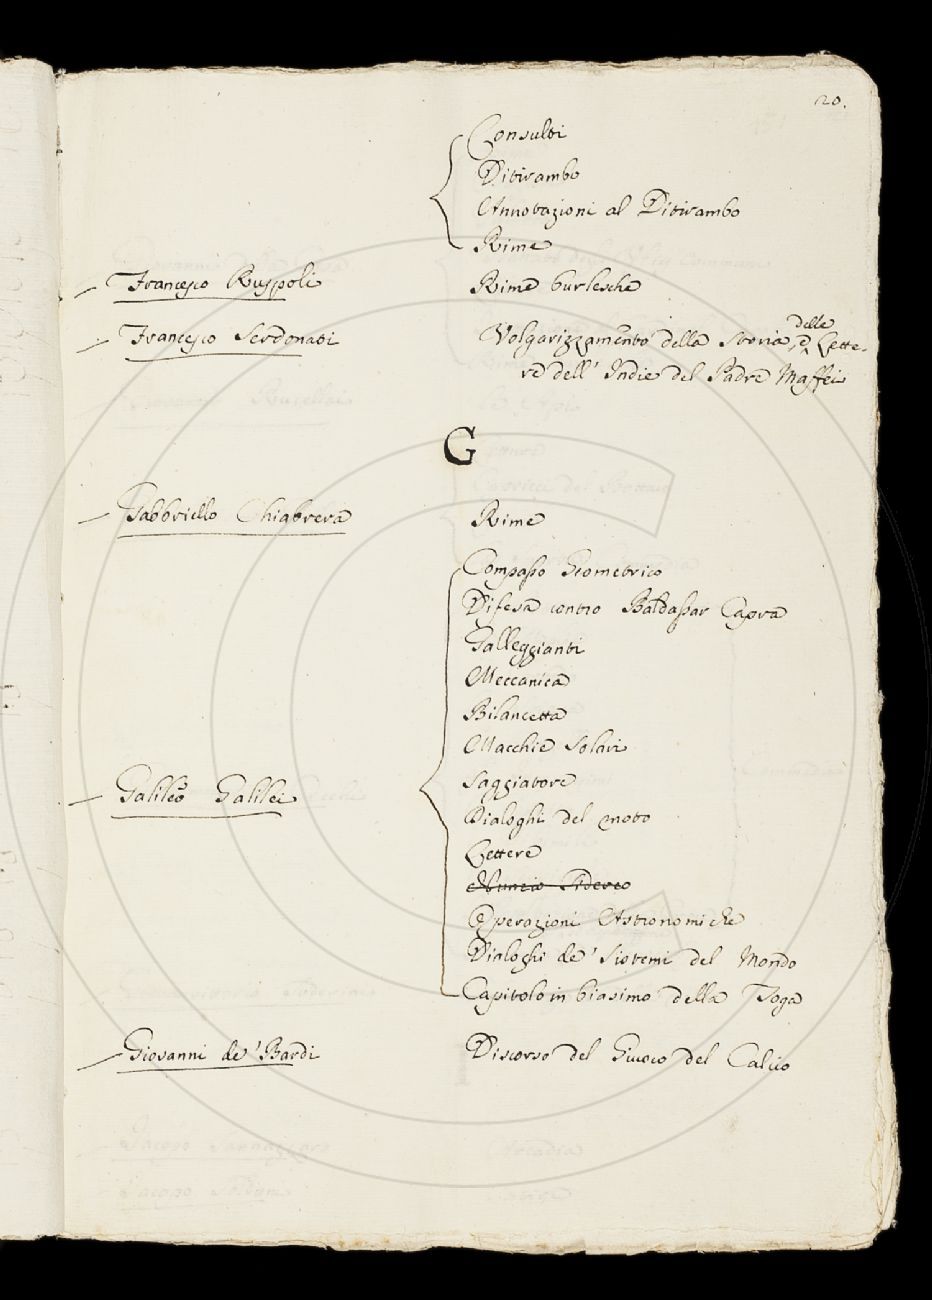 20.
Consulti
Ditirambo
Annotazioni al Ditirambo
Rime
Francesco Ruspoli Rime burlesche
Francesco Serdonati Volgarizzamento della Storia, e delle Lette-
re dell' Indie del Padre Maffei
G
Gabbriello Chiabrera Rime
Compasso Geometrico
Difesa contro Baldassar Capra
Galleggianti
Meccanica
Bilancetta
Macchie Solari
Galileo Galilei Saggiatore
Dialoghi del moto
Lettere
Nuncio Sidereo
Operazioni Astronomiche
Dialoghi de' Sistemi del Mondo
Capitolo in biasimo della Toga
Giovanni de' Bardi Discorso del Giuoco del Calcio